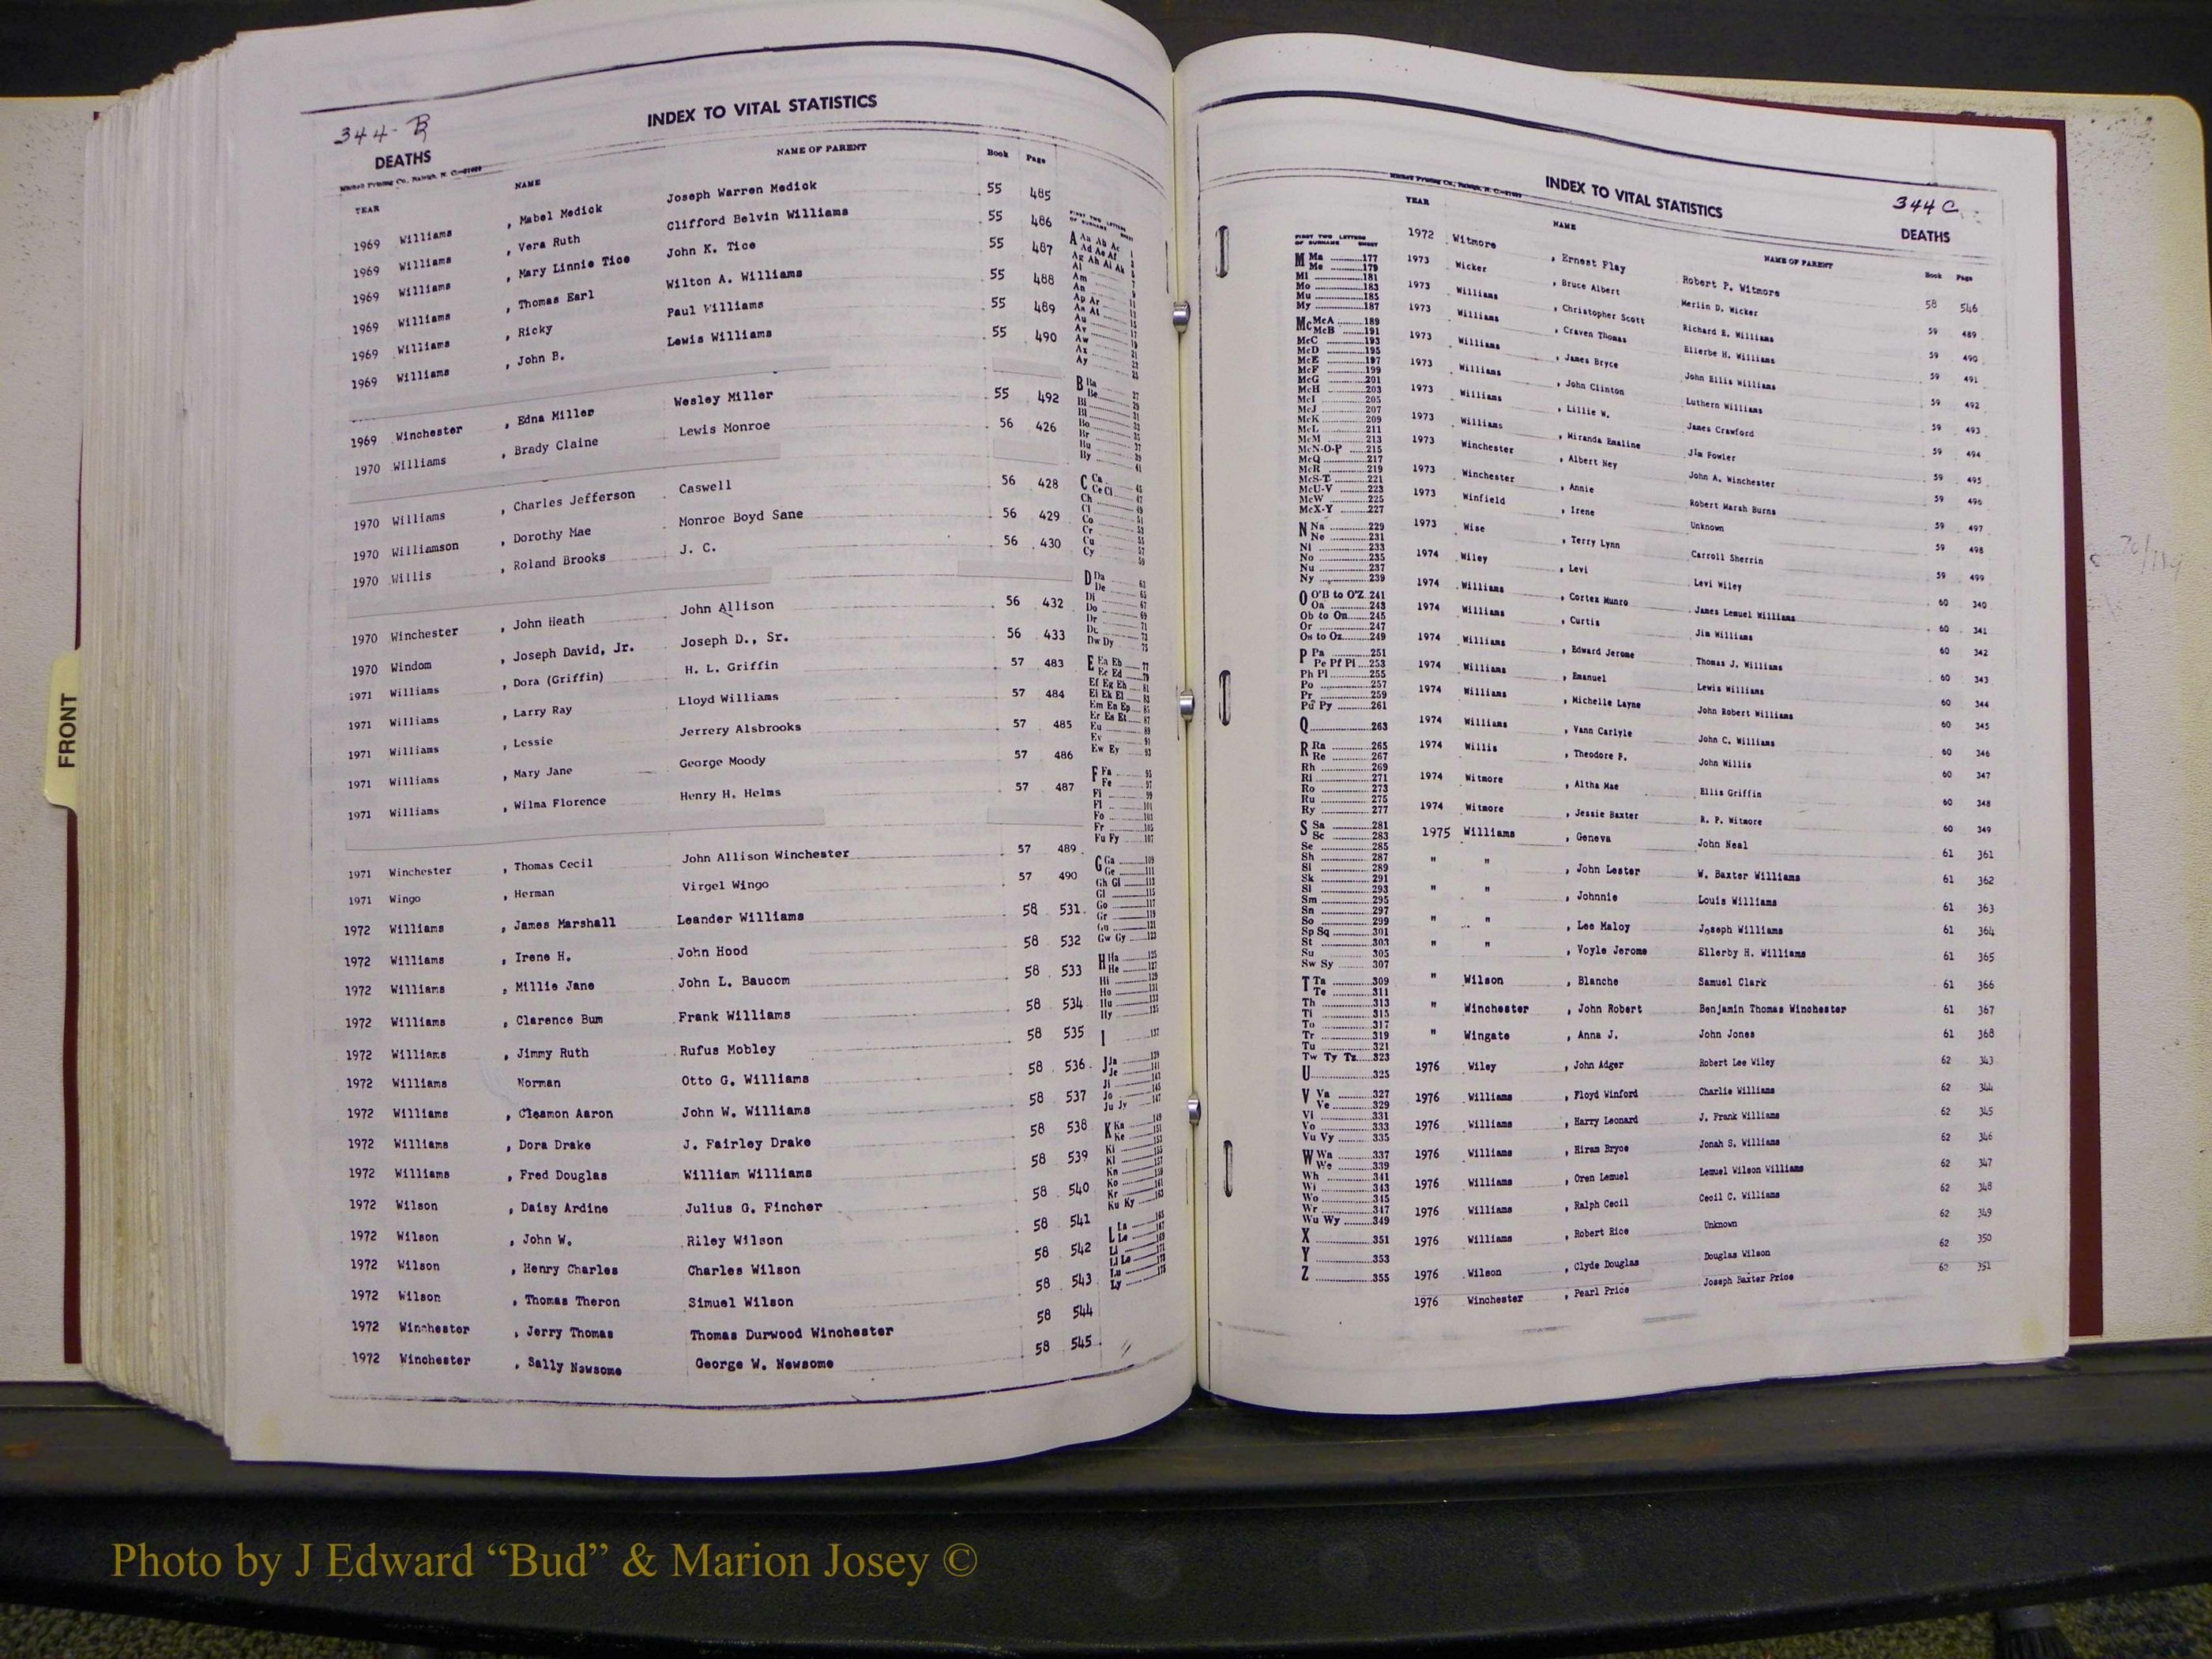 344-B
INDEX TO VITAL STATISTICS
DEATHS
YEAR NAME NAME OF PARENT Book Page
1969 Williams , Mabel Medick Joseph Warren Medick 55 485
1969 Williams , Vera Ruth Clifford Belvin Williams 55 486
1969 Williams , Mary Linnie Tice John K. Tice 55 487
1969 Williams , Thomas Earl Wilton A. Williams 55 488
1969 Williams , Ricky Paul Williams 55 489
1969 Williams , John B. Lewis Williams 55 490
1969 Winchester , Edna Miller Wesley Miller 55 492
1970 Williams , Brady Claine Lewis Monroe 56 426
1970 Williams , Charles Jefferson Caswell 56 428
1970 Williamson , Dorothy Mae Monroe Boyd Sane 56 429
1970 Willis , Roland Brooks J. C. 56 430
1970 Winchester , John Heath John Allison 56 432
1970 Windom , Joseph David, Jr. Joseph D., Sr. 56 433
1971 Williams , Dora (Griffin) H. L. Griffin 57 483
1971 Williams , Larry Ray Lloyd Williams 57 484
1971 Williams , Lessie Jerrery Alsbrooks 57 485
1971 Williams , Mary Jane George Moody 57 486
1971 Williams , Wilma Florence Henry H. Helms 57 487
1971 Winchester , Thomas Cecil John Allison Winchester 57 489
1971 Wingo , Herman Virgel Wingo 57 490
1972 Williams , James Marshall Leander Williams 58 531
1972 Williams , Irene H. John Hood 58 532
1972 Williams , Millie Jane John L. Baucom 58 533
1972 Williams , Clarence Bum Frank Williams 58 534
1972 Williams , Jimmy Ruth Rufus Mobley 58 535
1972 Williams Norman Otto G. Williams 58 536
1972 Williams , Cleamon Aaron John W. Williams 58 537
1972 Williams , Dora Drake J. Fairley Drake 58 538
1972 Williams , Fred Douglas William Williams 58 539
1972 Wilson , Daisy Ardine Julius G. Fincher 58 540
1972 Wilson , John W. Riley Wilson 58 541
1972 Wilson , Henry Charles Charles Wilson 58 542
1972 Wilson , Thomas Theron Simuel Wilson 58 543
1972 Winchester , Jerry Thomas Thomas Durwood Winchester 58 544
1972 Winchester , Sally Newsome George W. Newsome 58 545
FIRST TWO LETTERS
OF SURNAME
FRONT
INDEX TO VITAL STATISTICS
344 C
DEATHS
YEAR NAME NAME OF PARENT Book Page
1972 Witmore , Ernest Play Robert P. Witmore 58 546
1973 Wicker , Bruce Albert Merlin D. Wicker 59 489
1973 Williams , Christopher Scott Richard E. Williams 59 490
1973 Williams , Craven Thomas Ellerbe H. Williams 59 491
1973 Williams , James Bryce John Ellis Williams 59 492
1973 Williams , John Clinton Luthern Williams 59 493
1973 Williams , Lillie W. James Crawford 59 494
1973 Williams , Miranda Emaline Jim Fowler 59 495
1973 Winchester , Albert Ney John A. Winchester 59 496
1973 Winchester , Annie Robert Marsh Burns 59 497
1973 Winfield , Irene Unknown 59 498
1973 Wise , Terry Lynn Carroll Sherrin 59 499
1974 Wiley , Levi Levi Wiley 60 340
1974 Williams , Cortez Munro James Lemuel Williams 60 341
1974 Williams , Curtis Jim Williams 60 342
1974 Williams , Edward Jerome Thomas J. Williams 60 343
1974 Williams , Emanuel Lewis Williams 60 344
1974 Williams , Michelle Layne John Robert Williams 60 345
1974 Williams , Vann Carlyle John C. Williams 60 346
1974 Willis , Theodore F. John Willis 60 347
1974 Witmore , Altha Mae Ellis Griffin 60 348
1974 Witmore , Jessie Baxter R. P. Witmore 60 349
1975 Williams , Geneva John Neal 61 361
" " , John Lester W. Baxter Williams 61 362
" " , Johnnie Louis Williams 61 363
" " , Lee Maloy Joseph Williams 61 364
" " , Voyle Jerome Ellerby H. Williams 61 365
" Wilson , Blanche Samuel Clark 61 366
" Winchester , John Robert Benjamin Thomas Winchester 61 367
" Wingate , Anna J. John Jones 61 368
1976 Wiley , John Adger Robert Lee Wiley 62 343
1976 Williams , Floyd Winford Charlie Williams 62 344
1976 Williams , Harry Leonard J. Frank Williams 62 345
1976 Williams , Hiram Bryce Jonah S. Williams 62 346
1976 Williams , Oren Lemuel Lemuel Wilson Williams 62 347
1976 Williams , Ralph Cecil Cecil C. Williams 62 348
1976 Williams , Robert Rice Unknown 62 349
1976 Wilson , Clyde Douglas Douglas Wilson 62 350
1976 Winchester , Pearl Price Joseph Baxter Price 62 351
FIRST TWO LETTERS
OF SURNAME SHEET
M Ma 177
Me 179
Mi 181
Mo 183
Mu 185
My 187
Mc McA 189
McB 191
McC 193
McD 195
McE 197
McF 199
McG 201
McH 203
McI 205
McJ 207
McK 209
McL 211
McM 213
McN-O-P 215
McQ 217
McR 219
McS-T 221
McU-V 223
McW 225
McX-Y 227
N Na 229
Ne 231
Ni 233
No 235
Nu 237
Ny 239
O O'B to O'Z 241
Oa 243
Ob to On 245
Or 247
Os to Oz 249
P Pa 251
Pe Pf Pi 253
Ph Pl 255
Po 257
Pr 259
Pu Py 261
Q 263
R Ra 265
Re 267
Rh 269
Ri 271
Ro 273
Ru 275
Ry 277
S Sa 281
Sc 283
Se 285
Sh 287
Si 289
Sk 291
Sl 293
Sm 295
Sn 297
So 299
Sp Sq 301
St 303
Su 305
Sw Sy 307
T Ta 309
Te 311
Th 313
Ti 315
To 317
Tr 319
Tu 321
Tw Ty Tz 323
U 325
V Va 327
Ve 329
Vi 331
Vo 333
Vu Vy 335
W Wa 337
We 339
Wh 341
Wi 343
Wo 345
Wr 347
Wu Wy 349
X 351
Y 353
Z 355
Photo by J Edward “Bud” & Marion Josey ©